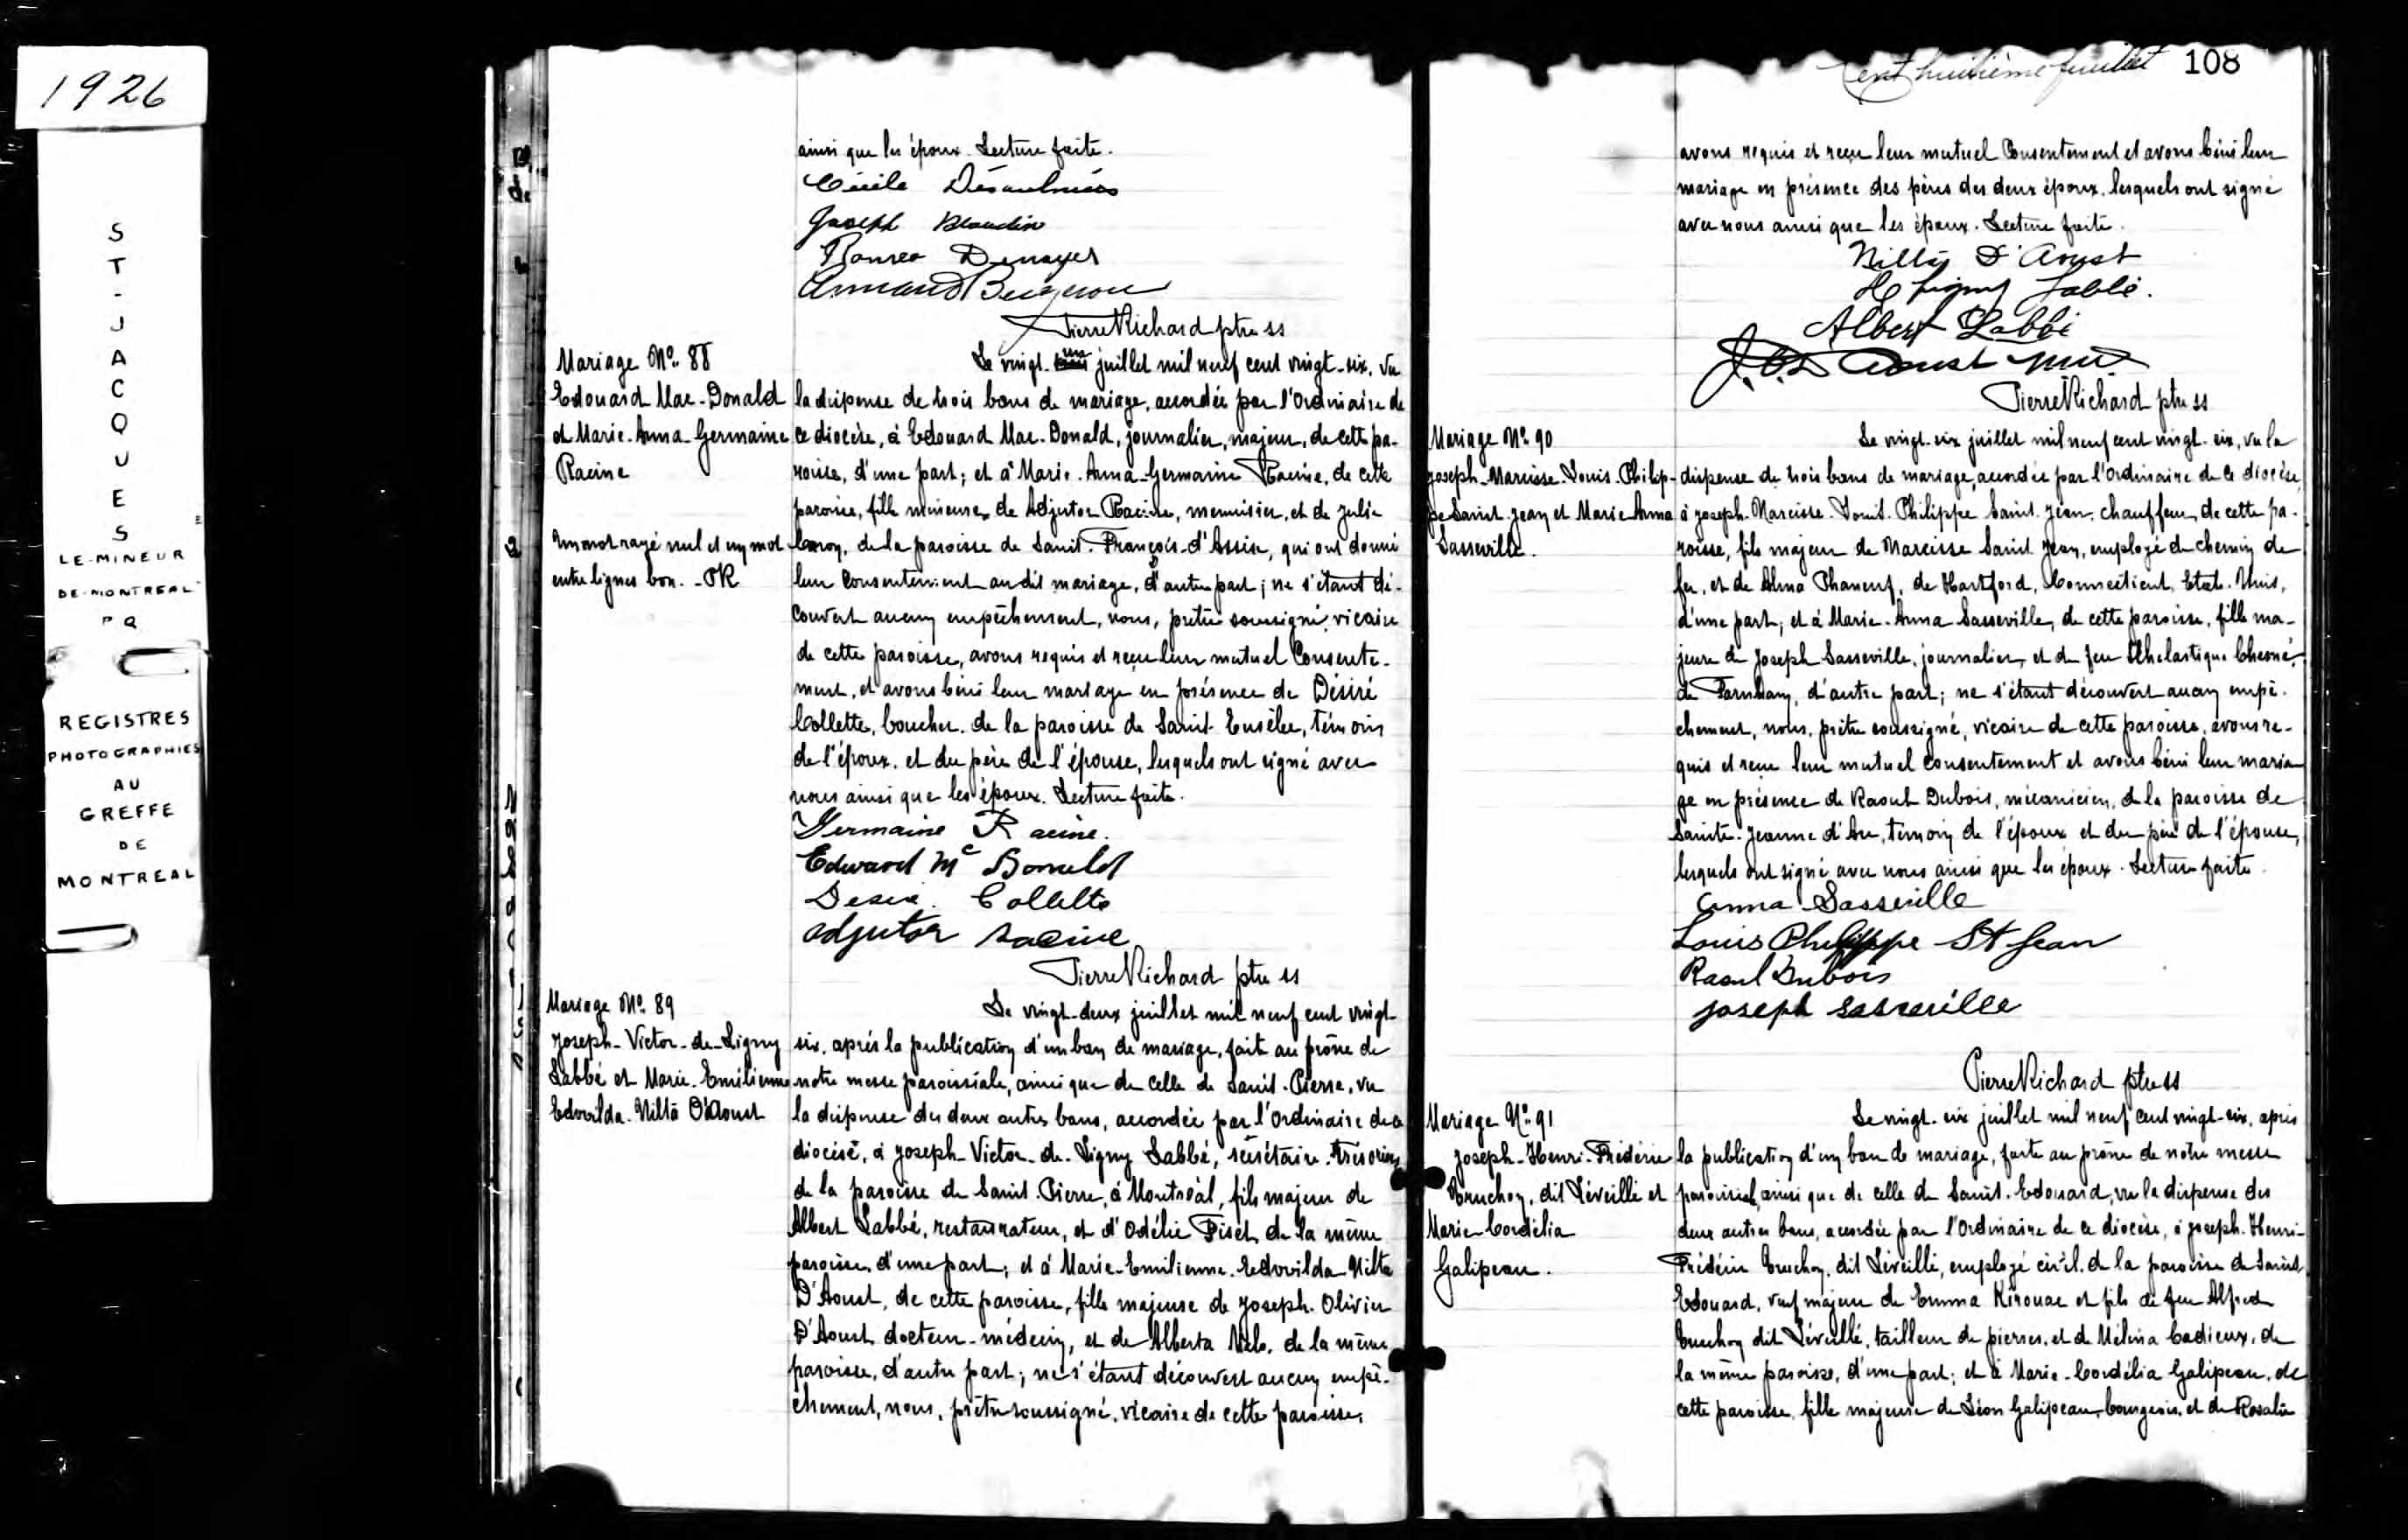 1926
ST-JACQUES
LE-MINEUR
DE-MONTREAL
P Q
REGISTRES
PHOTOGRAPHIES
AU
GREFFE
DE
MONTREAL
ainsi que les époux. Lecture faite.
Cécile Désaulniers
Joseph Beaudin
Romeo Demayer
Armand Bergeron
Pierre Richard ptre ss
Mariage No. 88
Edouard Mac-Donald
et Marie-Anna-Germaine
Racine
Un mot rayé nul et un mot
entre lignes bon. - PR
Le vingt-un juillet mil neuf cent vingt-six, vu
la dispense de trois bans de mariage, accordée par l'Ordinaire de
ce diocèse, à Edouard Mac-Donald, journalier, majeur, de cette pa-
roisse, d'une part; et à Marie-Anna-Germaine Racine, de cette
paroisse, fille mineure de Adjutor Racine, menuisier, et de Julie
Caron, de la paroisse de Saint-François-d'Assise, qui ont donné
leur consentement au dit mariage, d'autre part; ne s'étant dé-
couvert aucun empêchement, nous, prêtre soussigné, vicaire
de cette paroisse, avons requis et reçu leur mutuel Consente-
ment, et avons béni leur mariage en présence de Désiré
Collette, boucher, de la paroisse de Saint-Eusèbe, témoin
de l'époux, et du père de l'épouse, lesquels ont signé avec
nous ainsi que les époux. Lecture faite.
Germaine Racine.
Edward Mc Donald
Desire Collette
Adjutor Racine
Pierre Richard ptre ss
Mariage No. 89
Joseph-Victor-de-Ligny
Labbé et Marie-Emilienne
Edovilda-Niltâ D'Aoust
Le vingt-deux juillet mil neuf cent vingt-
six, après la publication d'un ban de mariage, fait au prône de
notre messe paroissiale, ainsi que de celle de Saint-Pierre, vu
la dispense des deux autres bans, accordée par l'Ordinaire de ce
diocèse, à Joseph-Victor-de-Ligny Labbé, secrétaire-trésorier,
de la paroisse de Saint-Pierre, à Montréal, fils majeur de
Albert Labbé, restaurateur, et d'Odélie Fiset, de la même
paroisse, d'une part; et à Marie-Emilienne-Edovilda Nilta
D'Aoust, de cette paroisse, fille majeure de Joseph-Olivier
D'Aoust, docteur-médecin, et de Alberta de la même
paroisse, d'autre part; ne s'étant découvert aucun empê-
chement, nous, prêtre soussigné, vicaire de cette paroisse,
Cent huitième feuillet 108
avons requis et reçu leur mutuel Consentement et avons béni leur
mariage en présence des pères des deux époux, lesquels ont signé
avec nous ainsi que les époux. Lecture faite.
Nilta D'Aoust
Ligny Labbé.
Albert Labbé
J. O. D'Aoust
Pierre Richard ptre ss
Mariage No. 90
Joseph-Narcisse-Louis-Philip-
pe Saint-Jean et Marie-Anna
Sasseville.
Le vingt-six juillet mil neuf cent vingt-six, vu la
dispense de trois bans de mariage, accordée par l'Ordinaire de ce diocèse,
à Joseph-Narcisse-Louis-Philippe Saint-Jean, chauffeur, de cette pa-
roisse, fils majeur de Narcisse Saint-Jean, employé de chemin de
fer, et de Alma Phaneuf, de Hartford, Connecticut, Etats-Unis,
d'une part; et à Marie-Anna Sasseville, de cette paroisse, fille ma-
jeure de Joseph Sasseville, journalier, et de feu Scholastique
de Farnham, d'autre part; ne s'étant découvert aucun empê-
chement, nous, prêtre soussigné, vicaire de cette paroisse, avons re-
quis et reçu leur mutuel consentement et avons béni leur maria-
ge en présence de Raoul Dubois, mécanicien, de la paroisse de
Sainte-Jeanne d'Arc, témoin de l'époux et du père de l'épouse,
lesquels ont signé avec nous ainsi que les époux. Lecture faite.
Anna Sasseville
Louis Philippe St Jean
Raoul Dubois
Joseph Sasseville
Pierre Richard ptre ss
Mariage No. 91
Joseph-Henri-Frédéric
Truchon, dit Léveillé et
Marie-Cordélia
Galipeau.
Le vingt-six juillet mil neuf cent vingt-six, après
la publication d'un ban de mariage, faite au prône de notre messe
paroissiale, ainsi que de celle de Saint-Edouard, vu la dispense des
deux autres bans, accordée par l'Ordinaire de ce diocèse, à Joseph-Henri-
Frédéric Truchon, dit Léveillé, employé civil, de la paroisse de Saint-
Edouard, veuf majeur de Emma Kirouac et fils de feu Alfred
Truchon dit Léveillé, tailleur de pierres, et de Mélina Cadieux, de
la même paroisse, d'une part; et à Marie-Cordélia Galipeau, de
cette paroisse, fille majeure de Léon Galipeau, bourgeois, et de Rosalie